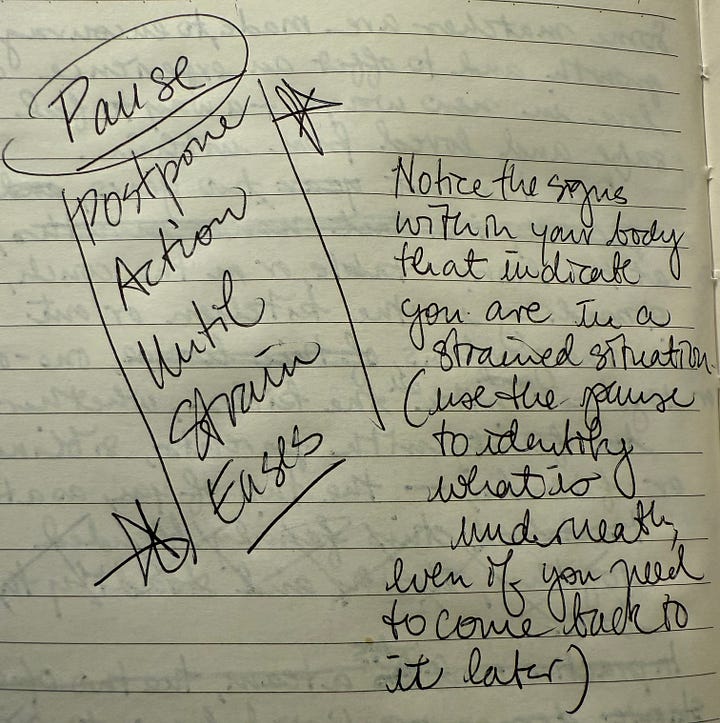 Pause
Postpone
Action
Until
Strain
Eases
Notice the signs
within your body
that indicate
you are in a
strained situation.
(use the pause
to identify
what is
underneath,
even if you need
to come back to
it later)